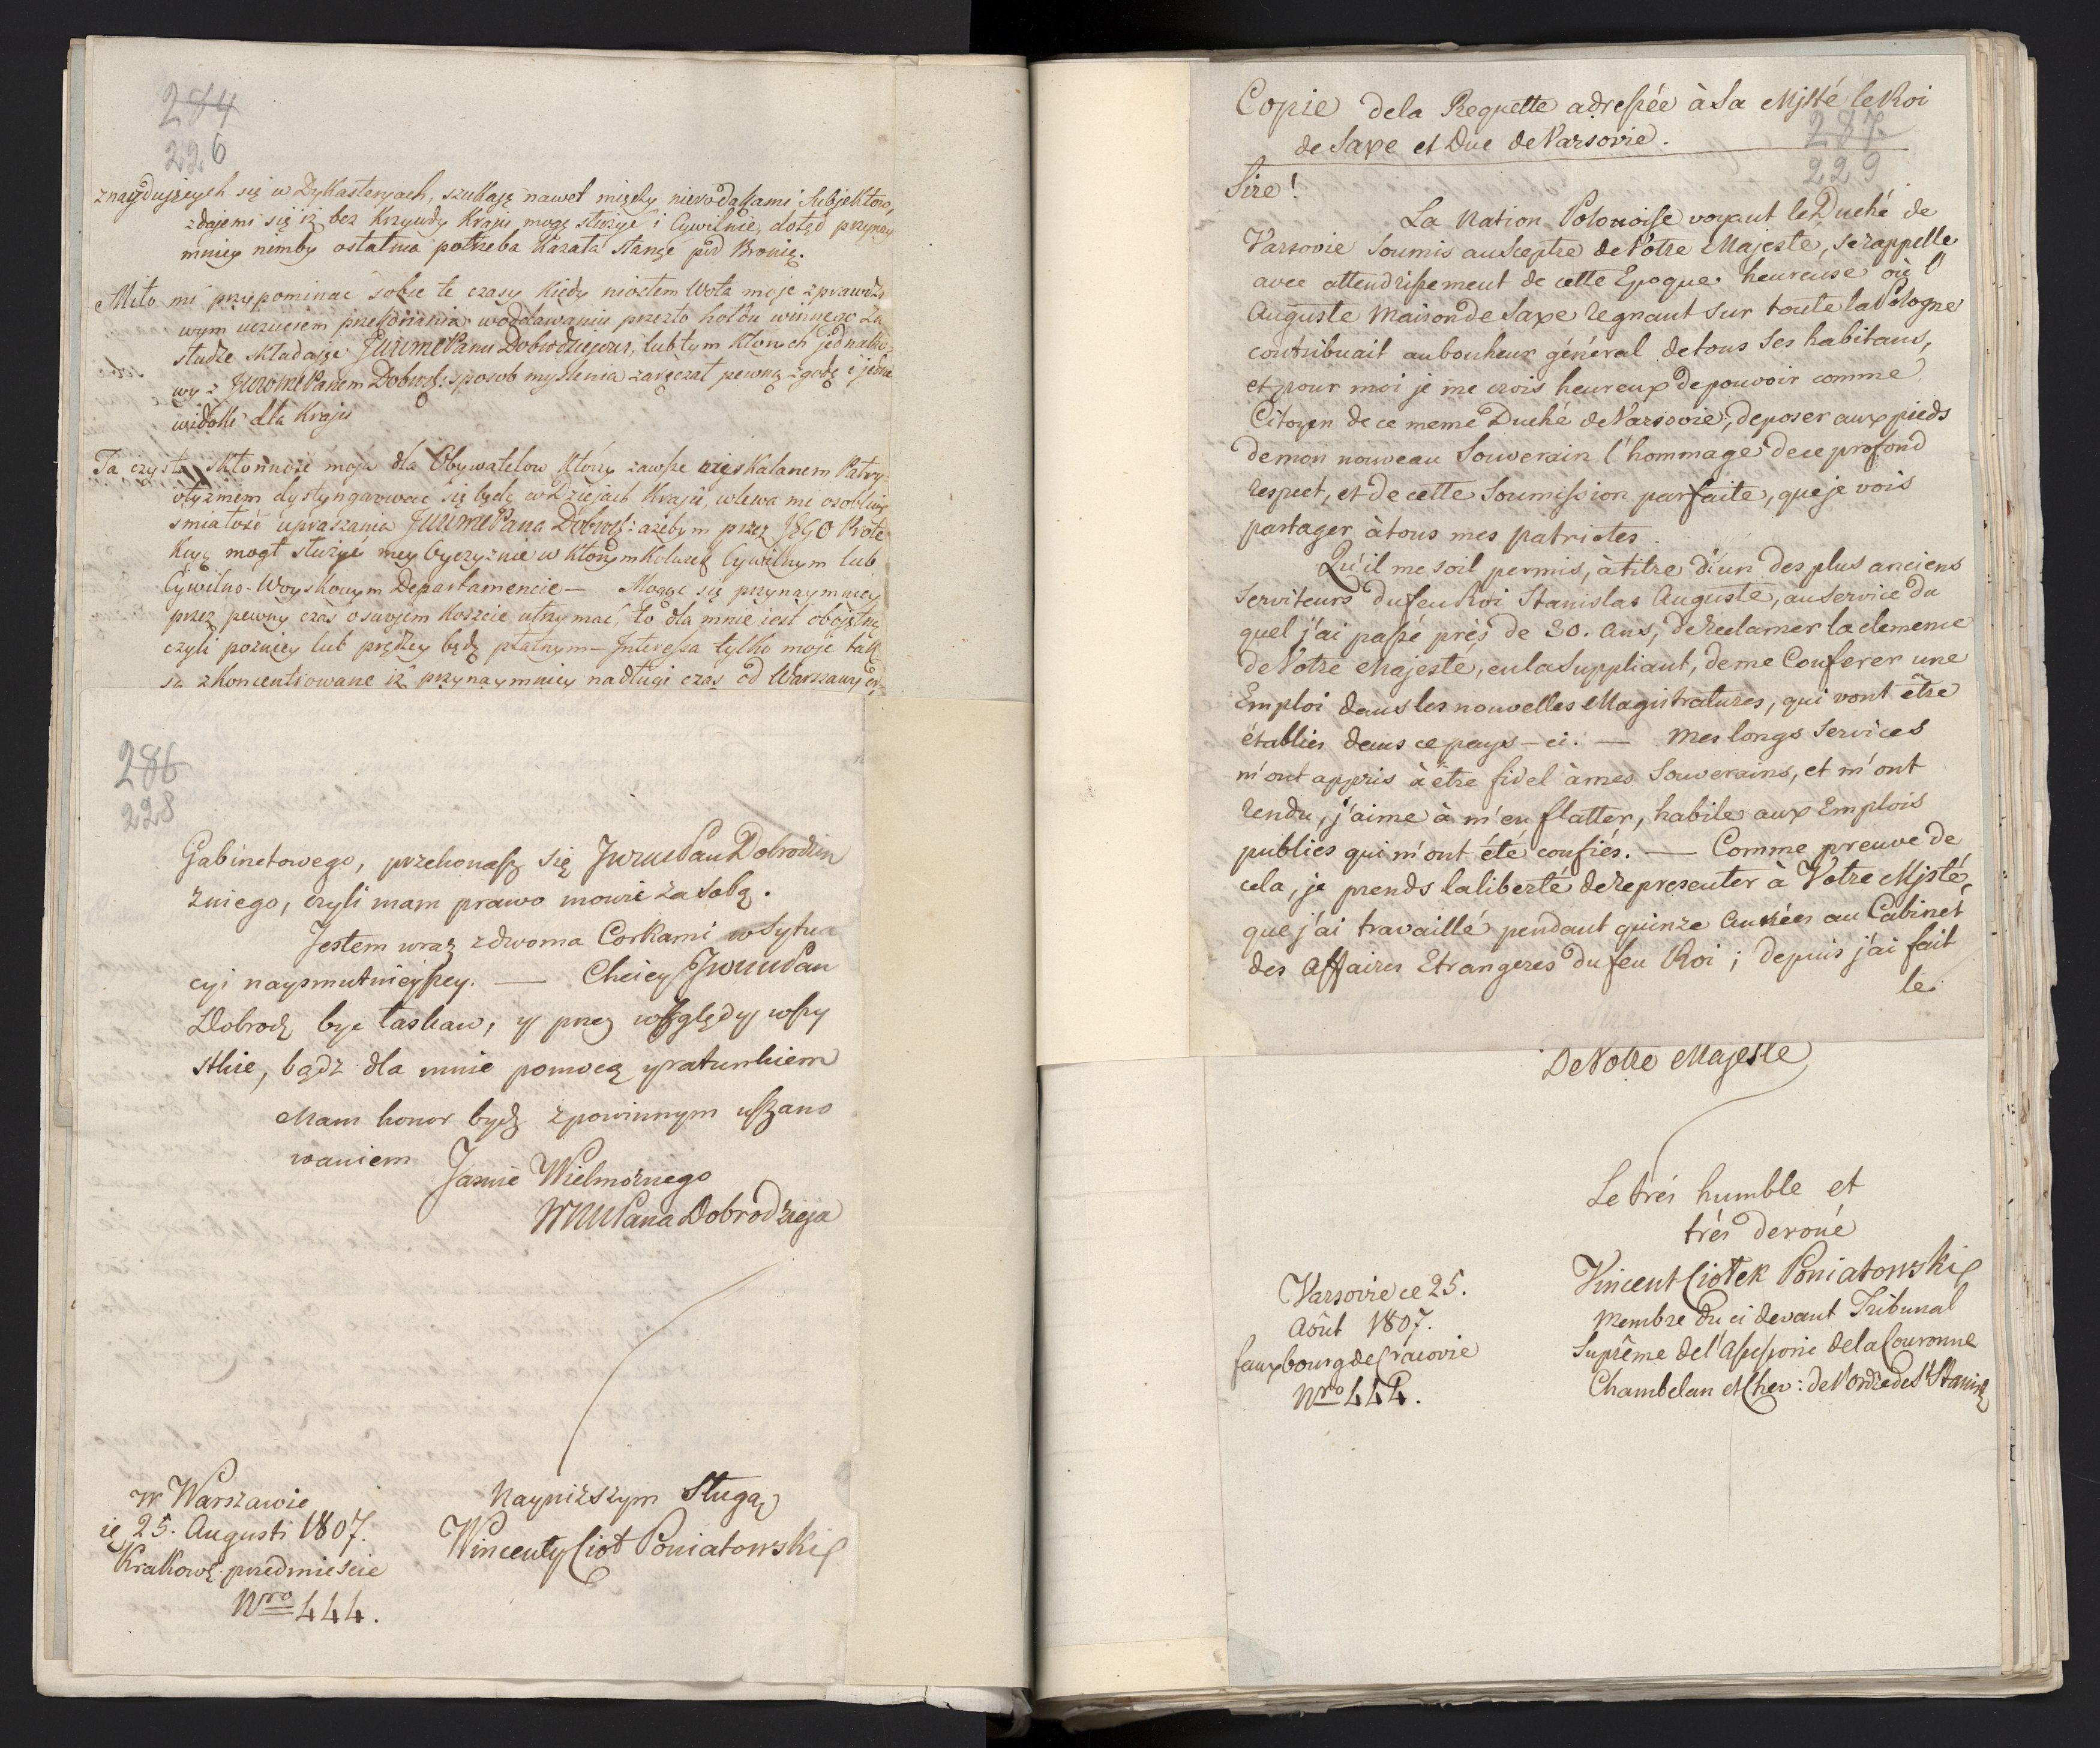 284
226
znayduiących się w Dykasteryach, szukaią nawet między nierodakami Subjektow,
zdajemi się iż bez Krzywdy Kraju mogę służyć i Cywilnie, dotąd przynay
mniey nimby ostatnia potrzeba kazała stanąć pod Bronią.
Miło mi przypominać sobie te czasy kiedy niosłem Wota moje z prawdzi
wym uczuciem przekonania w oddawaniu przezto hołdu winnego Za
słudze składaiąc JWWmePanu Dobrodziejowi, lub tym których jednako
wy z JWWmePanem Dobrodz: sposob myslenia zaręczał pewną zgodę i jedne
widoki dla Kraju
Ta czysta skłonność moja dla Obywatelow którzy zawsze nieskalanem Patry
otyzmem dystyngwować się będą w Dziejach Kraju, wlewa mi osobliwą
smiałość upraszania JWWmePana Dobrodz: ażebym przez JEgO Prote
kcyą mogł służyć mey Oyczyznie w którymkolwiek Cywilnym lub
Cywilno-Woyskowym Departamencie — Mogąc się przynaymniey
przez pewny czas o swojem koszcie utrzymać, to dla mnie iest obojętną
czyli pozniey lub prędzey będę płatnym — Interessa tylko moje tak
są zkoncentrowane iż przynaymniey na długi czas od Warszawy od
286
228
Gabinetowego, przekonasz się JWWMPan Dobrodziey
z niego, czyli mam prawo mowić za sobą.
Jestem wraz z dwoma Corkami w Sytua
cyi naysmutnieyszey. — Chciey JWWMPan
Dobrodz bydź łaskaw, y przez względy wszy
stkie, bądź dla mnie pomocą y ratunkiem
Mam honor bydź z powinnym uszano
waniem
Jasnie Wielmożnego
WMPana Dobrodzieja
W Warszawie
25. Augusti 1807.
Krakows. przedmieście
Nro 444.
Nayniższym Sługą
Wincenty Cioł Poniatowski
Copie de la Requette adressée à Sa Mjsté le Roi
de Saxe et Duc de Varsovie.
287
229
Sire!
La Nation Polonoise voyant le Duché de
Varsovie soumis au Sceptre de Votre Majesté, se rappelle
avec attendrissement de cette Epoque heureuse où l'
Auguste Maison de Saxe regnant sur toute la Pologne
contribuait au bonheur général de tous ses habitans,
et pour moi je me crois heureux de pouvoir comme
Citoyen de ce meme Duché de Varsovie, deposer aux pieds
de mon nouveau Souverain l'hommage de ce profond
respect, et de cette Soumission parfaite, que je vois
partager à tous mes patriotes.
Qu'il me soit permis, à titre d'un des plus anciens
Serviteurs du feu Roi Stanislas Auguste, au service du
quel j'ai passé près de 30. ans, de reclamer la clemence
de Votre Majesté, en la Suppliant, de me Conferer une
Emploi dans les nouvelles Magistratures, qui vont être
établies dans ce pays-ci. — Mes longs Services
m'ont appris à être fidel à mes Souverains, et m'ont
rendu, j'aime à m'en flatter, habile aux Emplois
publics qui m'ont été confiés. — Comme preuve de
cela, je prends la liberté de representer à Votre Mjsté,
que j'ai travaillé pendant quinze Années au Cabinet
des Affaires Etrangeres du feu Roi; depuis j'ai fait
le
De Votre Majesté
Le très humble et
très devoué
Vincent Ciołek Poniatowski
Membre du ci devant Tribunal
Suprême de l'Assessorie de la Couronne
Chambelan et Chev: de l'ordre de St Stanisl
Varsovie ce 25.
Août 1807.
fauxbourg de Cracovie
Nro 444.